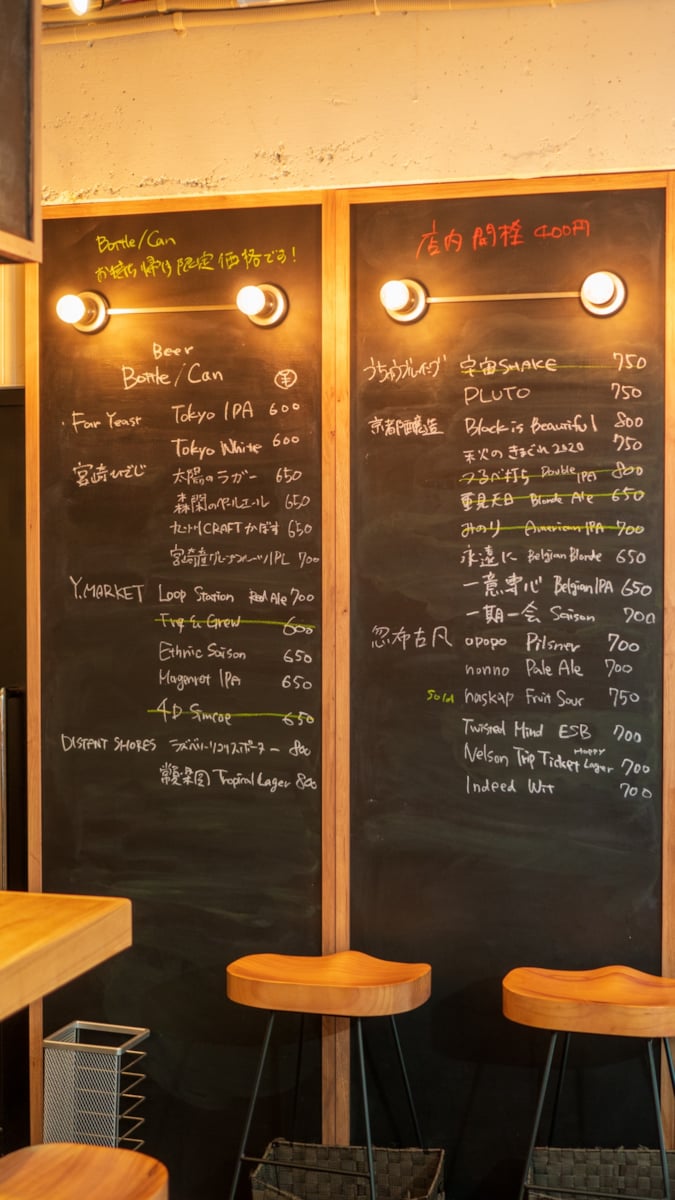 Bottle/Can
お持ち帰り限定価格です!
Beer
Bottle/Can ￥
Far Yeast Tokyo IPA 600
Tokyo White 600
宮崎ひでじ 太陽のラガー 650
森閑のペールエール 650
九州CRAFTかぼす 650
宮崎産グレープフルーツIPL 700
Y.MARKET Loop Station Red Ale 700
Grew 600
Ethnic Saison 650
IPA 650
4D Simcoe 650
DISTANT SHORES 800
Tropical Lager 800
店内開栓 400円
うちゅうブルーイング 宇宙SHAKE 750
PLUTO 750
京都醸造 Black is Beautiful 800
末火のきまぐれ2020 750
つるべ打ち Double IPA 800
重見天日 Blonde Ale 650
みのり American IPA 700
永遠に Belgian Blonde 650
一意専心 Belgian IPA 650
一期一会 Saison 700
忽布古丹 upopo Pilsner 700
nonno Pale Ale 700
Sold haskap Fruit Sour 750
Twisted Mind ESB 700
Nelson Trip Ticket Hoppy Lager 700
Indeed Wit 700